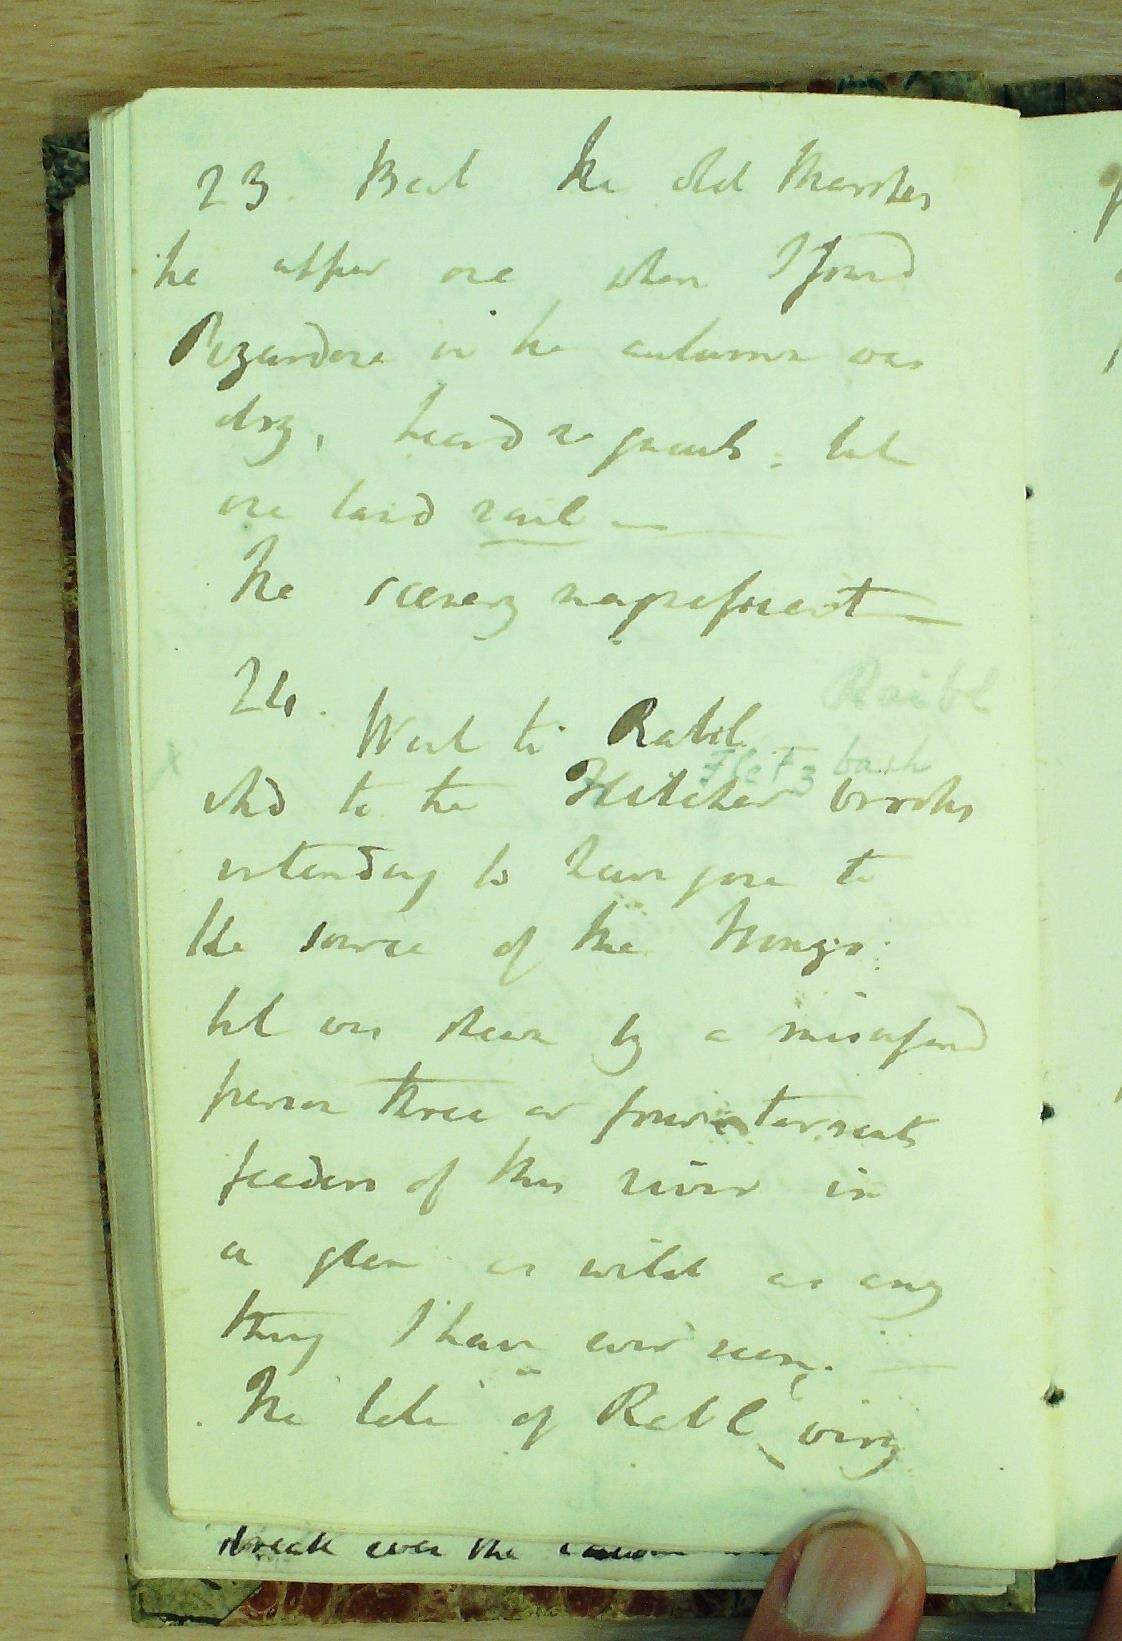 23. Beat the old Marshes
the upper one where I found
in the autumn was
dry, heard no snails: but
one land rail —
The scenery magnificent —
Raibl
24. Went to Raibl
x Fletz bach
& to the Flitcher brooks
intending to have gone to
the source of the
but was shewn by a misinformed
person three or four torrents
feeders of this river in
a glen as wild as any
thing I have ever seen. —
The lake of Raibl very
over the